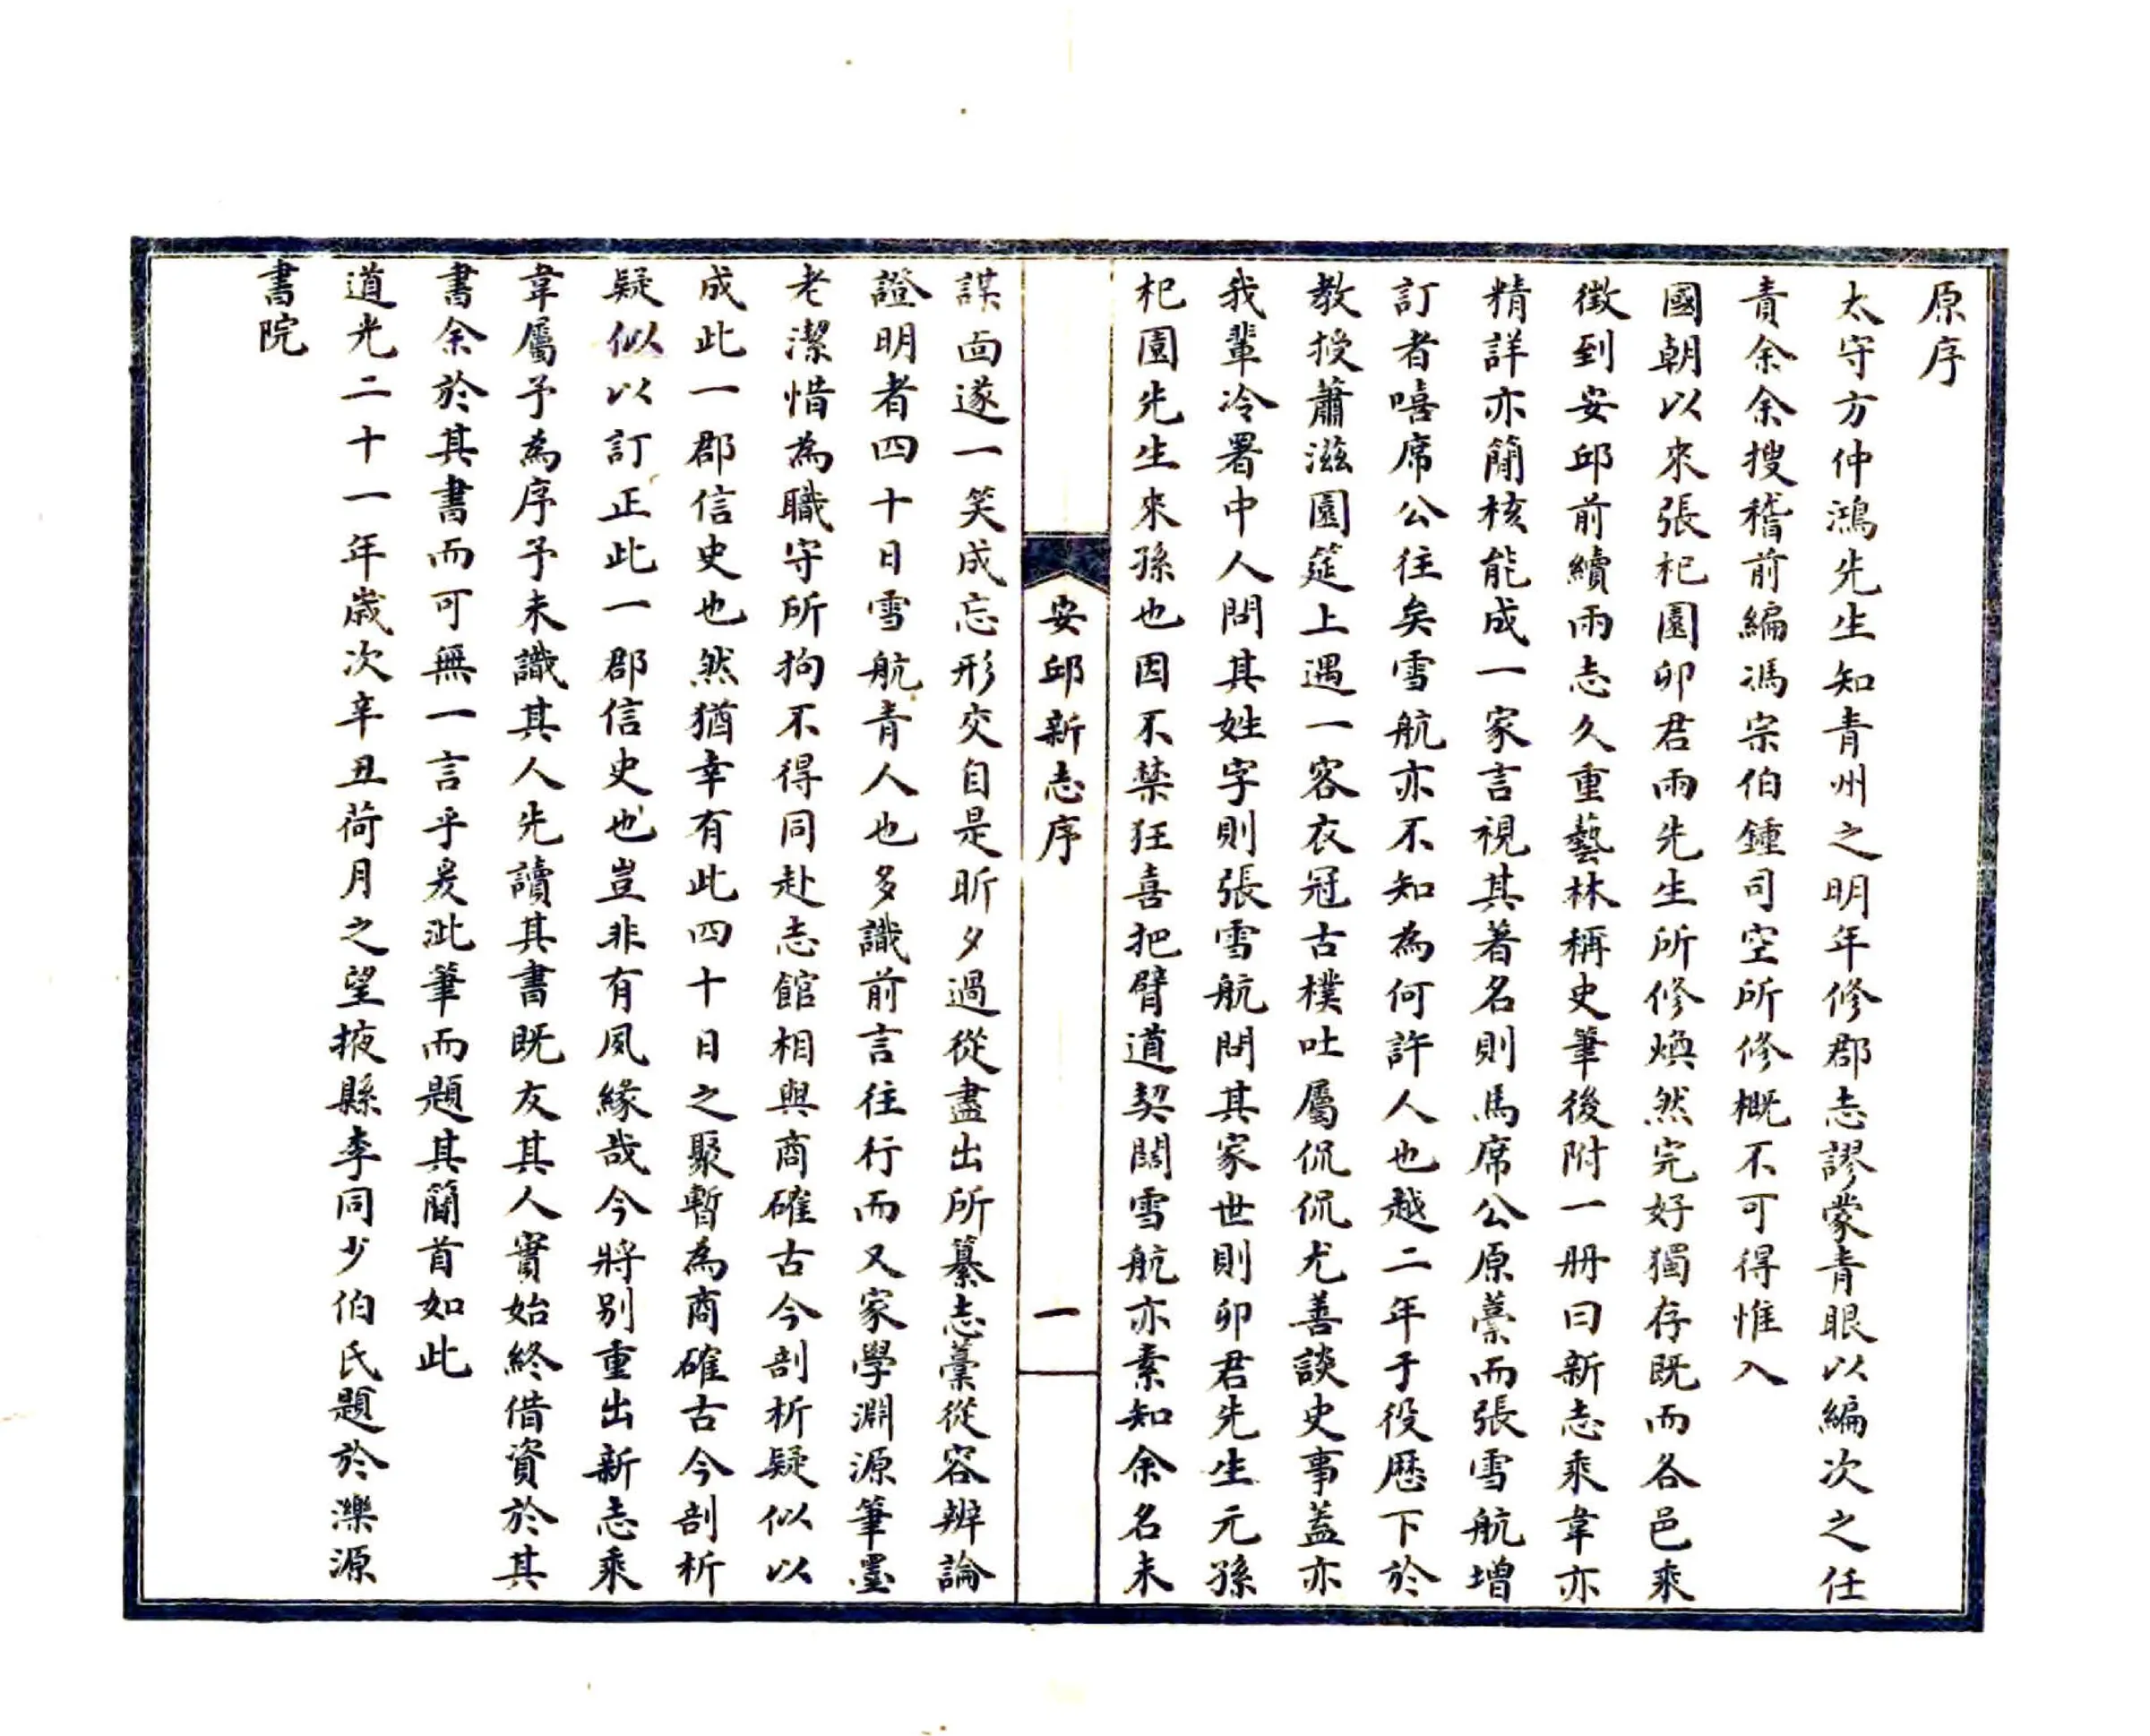 原序
太守方仲鴻先生知青州之明年修郡志謬蒙青眼以編次之任
責余余搜稽前編馮宗伯鍾司空所修概不可得惟入
國朝以來張杞園卯君兩先生所修煥然完好獨存既而各邑乘
徵到安邱前續兩志久重藝林稱史筆後附一冊曰新志乘韋亦
精詳亦簡核能成一家言視其著名則馬席公原藁而張雪航增
訂者嘻席公往矣雪航亦不知為何許人也越二年于役歷下於
教授蕭滋園筵上遇一客衣冠古樸吐屬侃侃尤善談史事蓋亦
我輩冷署中人問其姓字則張雪航問其家世則卯君先生元孫
杞園先生來孫也因不禁狂喜把臂道契闊雪航亦素知余名未
安邱新志序
一
謀面遂一笑成忘形交自是昕夕過從盡出所纂志藁從容辨論
證明者四十日雪航青人也多識前言往行而又家學淵源筆墨
老潔惜為職守所拘不得同赴志館相與商確古今剖析疑似以
成此一郡信史也然猶幸有此四十日之聚暫為商確古今剖析
疑似以訂正此一郡信史也豈非有夙緣哉今將别重出新志乘
韋屬予為序予未識其人先讀其書既友其人實始終借資於其
書余於其書而可無一言乎爰泚筆而題其簡首如此
道光二十一年歲次辛丑荷月之望掖縣李同少伯氏題於濼源
書院